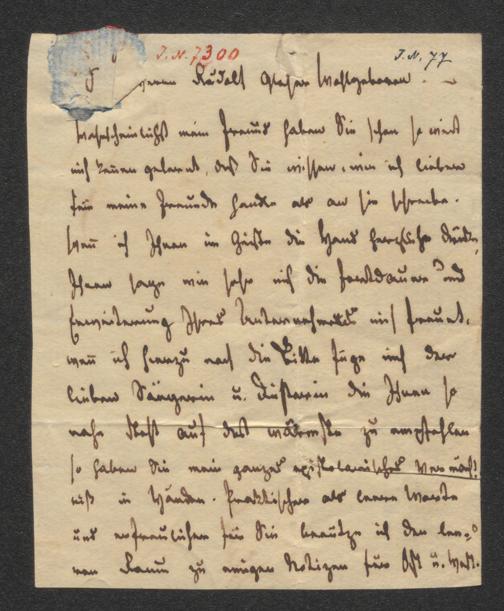 J. N. 7300 J. N. 77
Herrn Rudolf Glaser Wohlgeboren.
Wahrscheinlichst mein Freund haben Sie schon so weit
mich kennen gelernt, daß Sie wissen, wie ich lieber
für meine Freunde handle als an sie schreibe.
Wenn ich Ihnen im Geiste die Hand herzlichst drücke,
Ihnen sage wie sehr mich die Fortdauer und
Erweiterung Ihres Unternehmens mich freuet,
wenn ich hierzu noch die Bitte füge mich der
lieben Sängerin u. Dichterin die Ihnen so
nahe steht auf das wärmste zu empfehlen
so haben Sie mein ganzes epistolarisches Vermächt-
niß in Händen. Praktischer als leere Worte
und erfreulicher für Sie benütze ich den lee-
ren Raum zu einigen Notizen für Ost u. West.